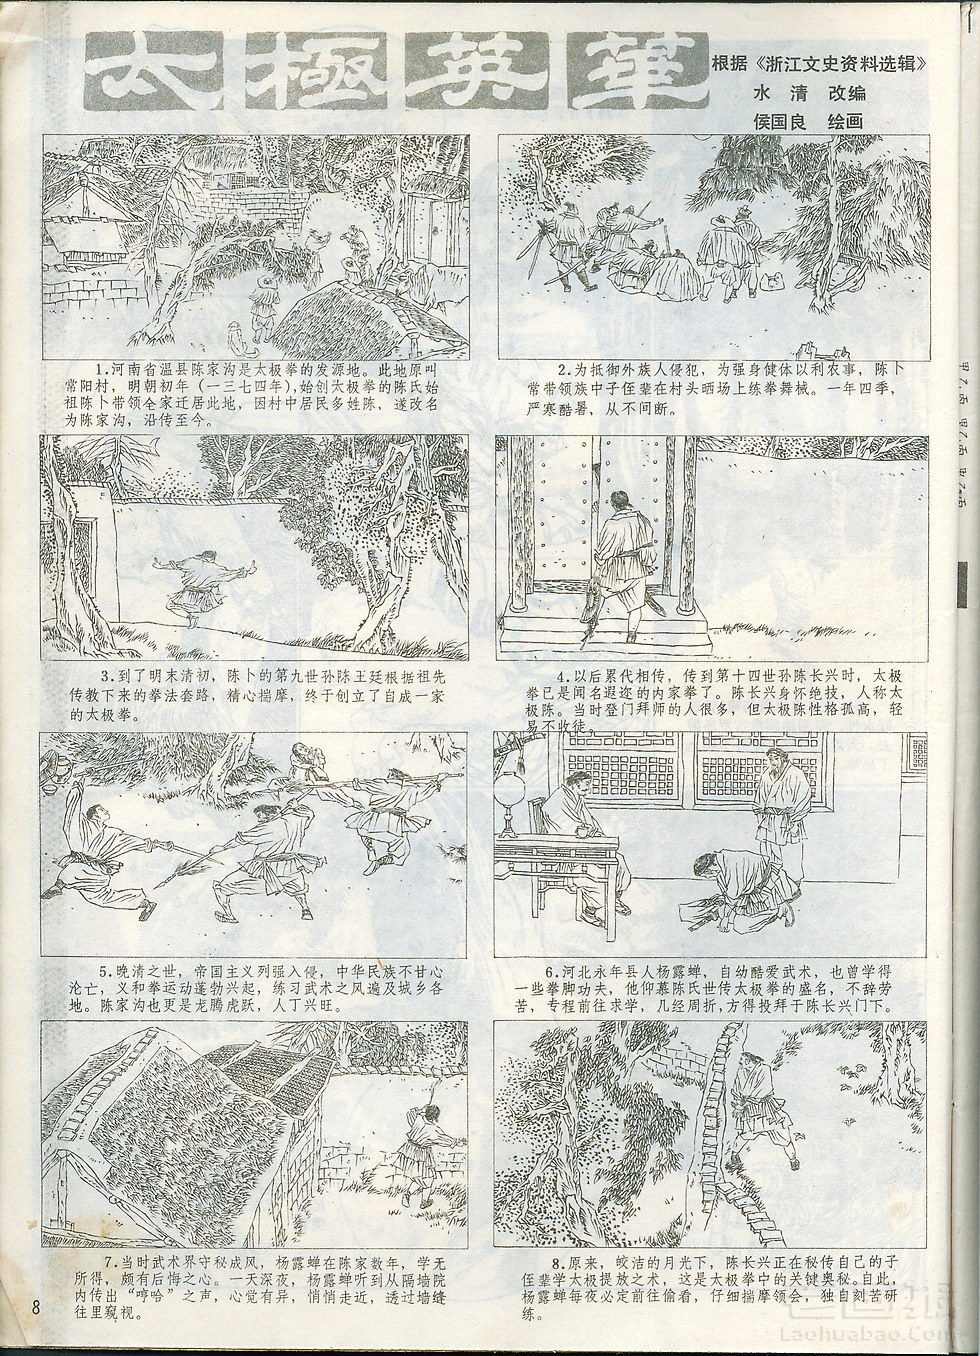 太極英華
根据《浙江文史资料选辑》
水 清 改编
侯国良 绘画
1.河南省温县陈家沟是太极拳的发源地。此地原叫
常阳村，明朝初年（一三七四年），始创太极拳的陈氏始
祖陈卜带领全家迁居此地，因村中居民多姓陈，遂改名
为陈家沟，沿传至今。
2.为抵御外族人侵犯，为强身健体以利农事，陈卜
常带领族中子侄辈在村头晒场上练拳舞械。一年四季，
严寒酷暑，从不间断。
3.到了明末清初，陈卜的第九世孙陈王廷根据祖先
传教下来的拳法套路，精心揣摩，终于创立了自成一家
的太极拳。
4.以后累代相传，传到第十四世孙陈长兴时，太极
拳已是闻名遐迩的内家拳了。陈长兴身怀绝技，人称太
极陈。当时登门拜师的人很多，但太极陈性格孤高，轻
易不收徒。
5.晚清之世，帝国主义列强入侵，中华民族不甘心
沦亡，义和拳运动蓬勃兴起，练习武术之风遍及城乡各
地。陈家沟也更是龙腾虎跃，人丁兴旺。
6.河北永年县人杨露蝉，自幼酷爱武术，也曾学得
一些拳脚功夫，他仰慕陈氏世传太极拳的盛名，不辞劳
苦，专程前往求学，几经周折，方得投拜于陈长兴门下。
7.当时武术界守秘成风，杨露蝉在陈家数年，学无
所得，颇有后悔之心。一天深夜，杨露蝉听到从隔墙院
内传出“哼哈”之声，心觉有异，悄悄走近，透过墙缝
往里窥视。
8.原来，皎洁的月光下，陈长兴正在秘传自己的子
侄辈学太极提放之术，这是太极拳中的关键奥秘。自此，
杨露蝉每夜必定前往偷看，仔细揣摩领会，独自刻苦研
练。
8
老画报
Laohuabao.Com